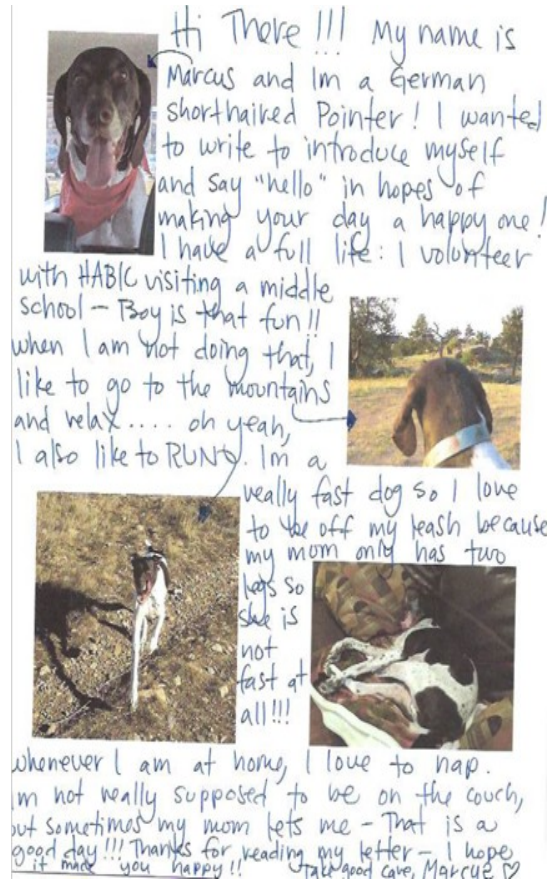 Hi There!!! My name is
Marcus and Im a German
shorthaired Pointer! I wanted
to write to introduce myself
and say "hello" in hopes of
making your day a happy one!
I have a full life: I volunteer
with HABIC visiting a middle
school - Boy is that fun!!
when I am not doing that, I
like to go to the mountains
and relax.... oh yeah,
I also like to RUN. Im a
really fast dog so I love
to be off my leash because
my mom only has two
legs so
she is
not
fast at
all!!!
whenever I am at home, I love to nap.
Im not really supposed to be on the couch,
but sometimes my mom lets me - That is a
good day!!! Thanks for reading my letter - I hope
it made you happy!! Take good care, Marcus ♡